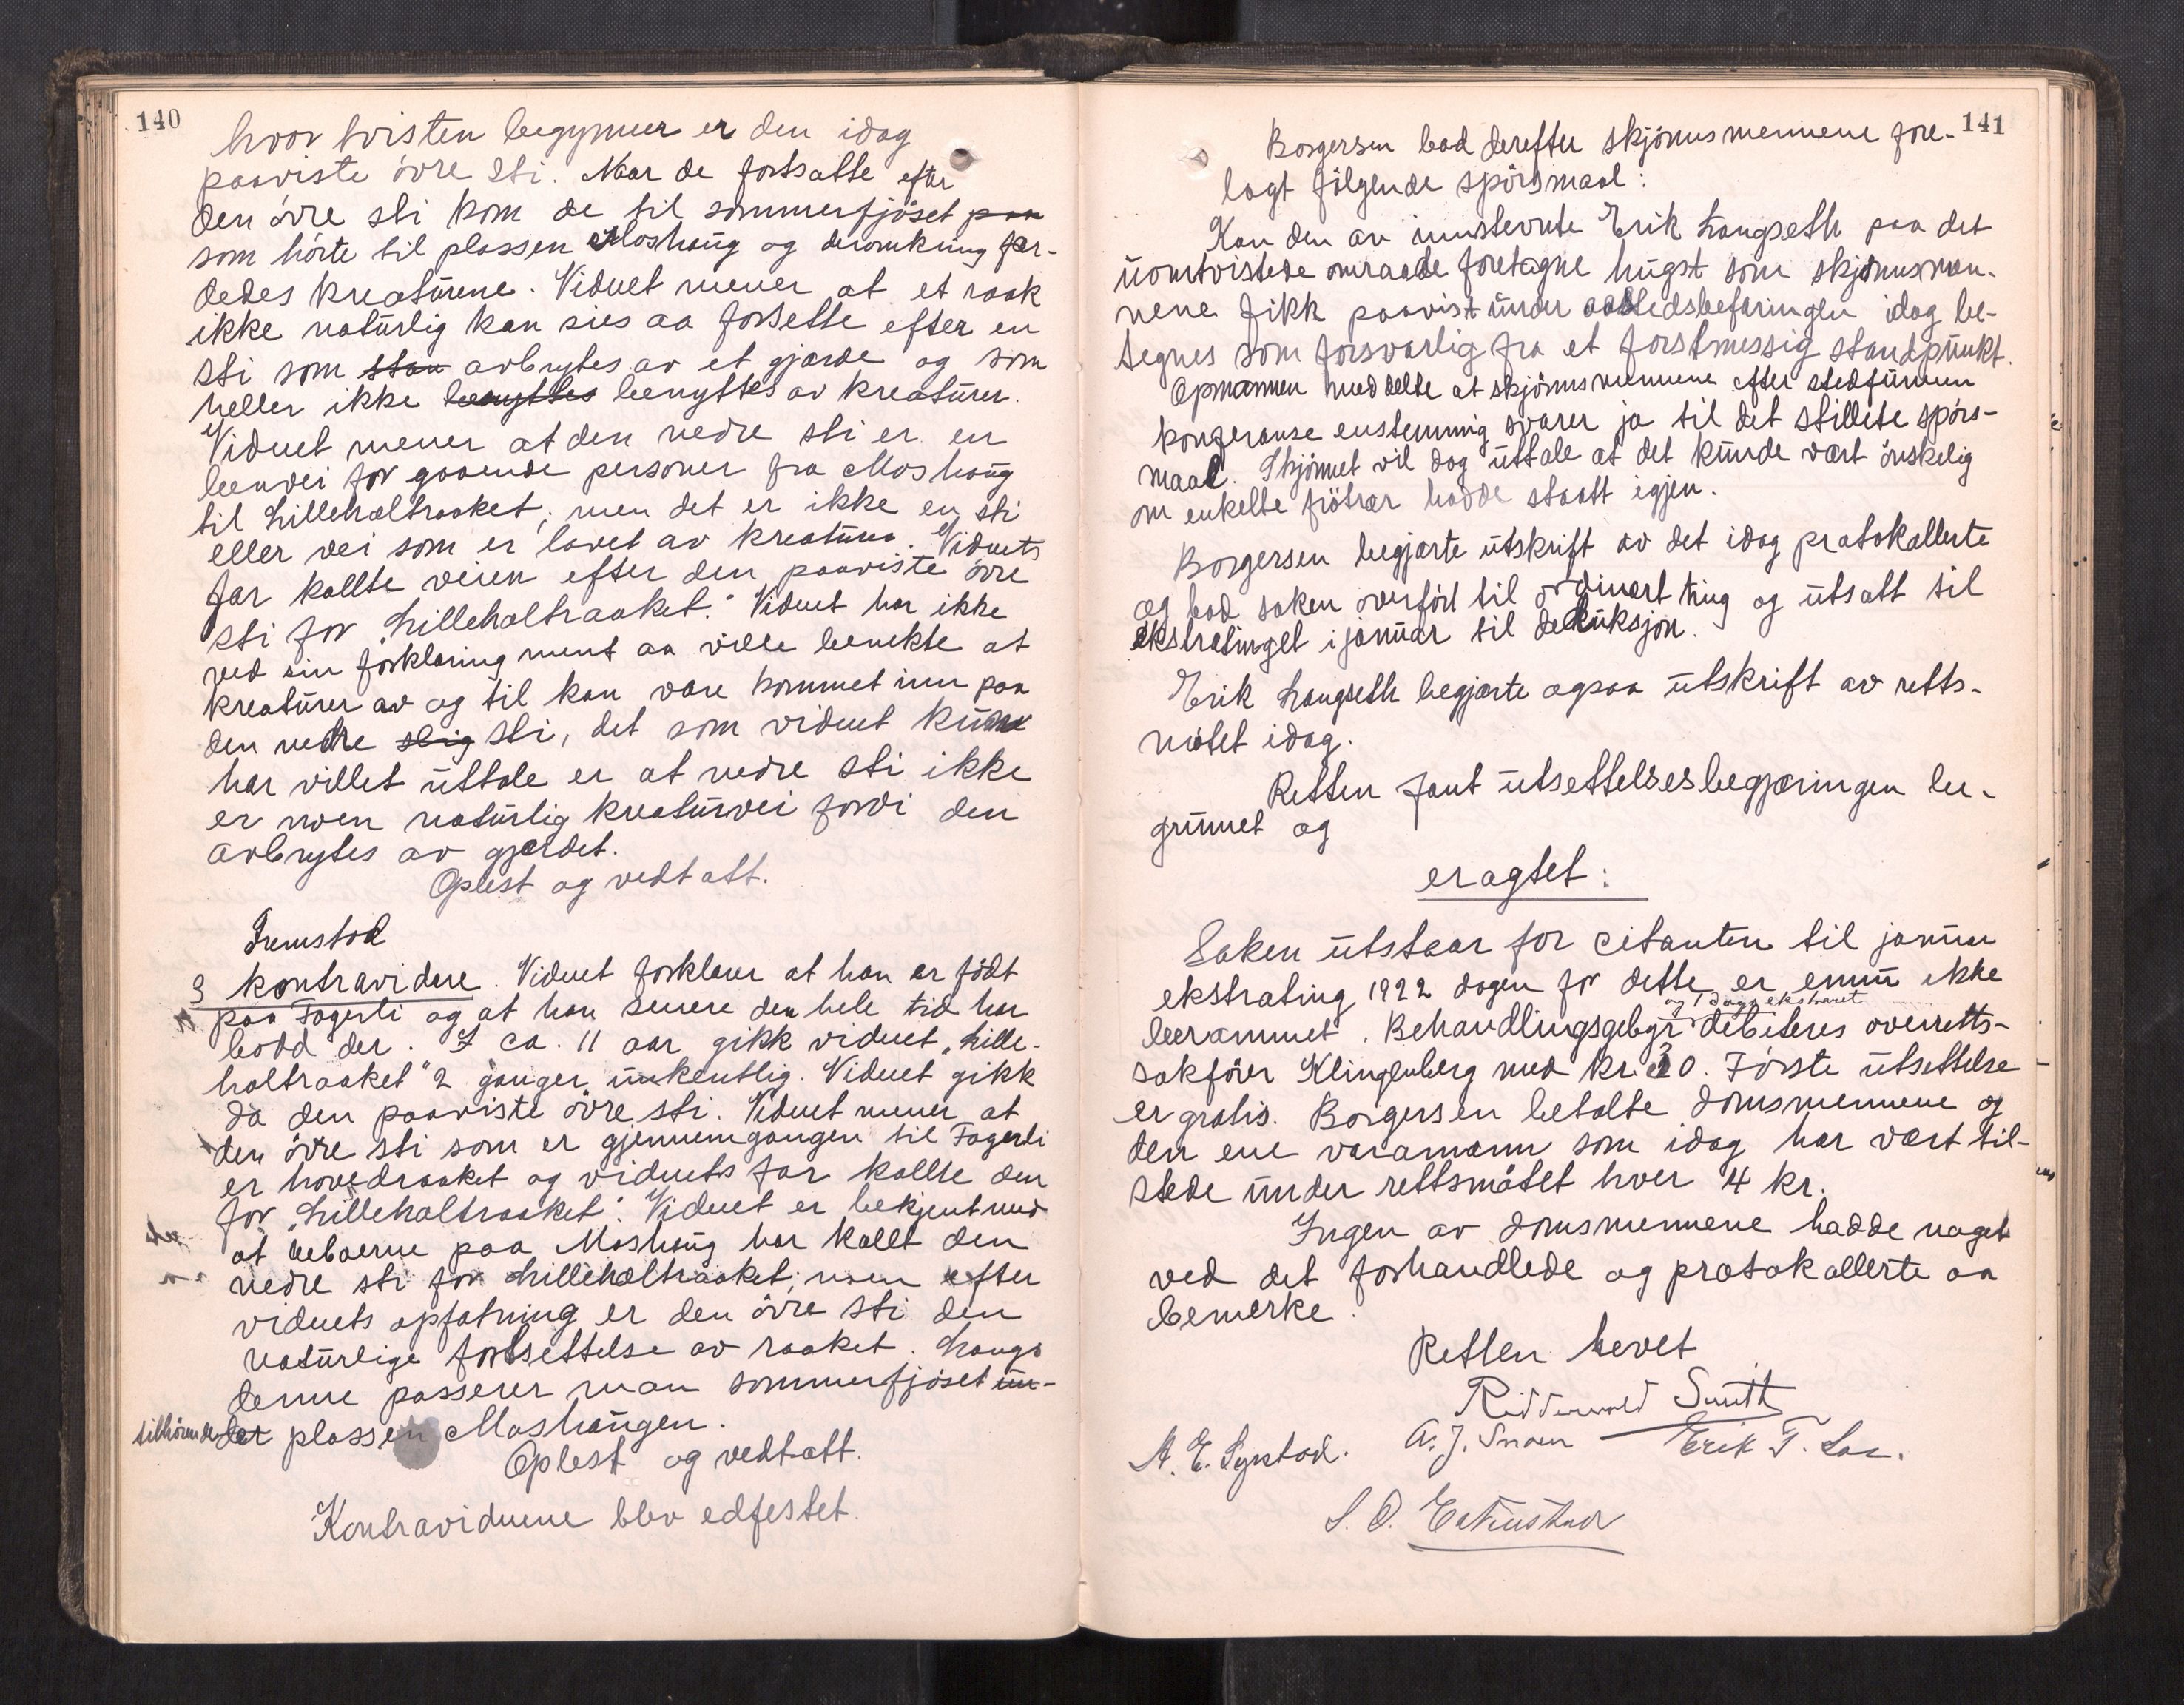 140
hvor tvisten begynner er den idag
paaviste övre sti. Naar de fortsatte efter
den övre sti kom de til sommerfjöset paa
som hörte til plassen Moshaug og deromkring fær-
dedes kreaturene. Vidnet mener at et raak
ikke naturlig kan sies aa forsette efter en
sti som stan avbrytes av et gjærde og som
heller ikke benyttes benyttes av kreaturer.
Vidnet mener at den nedre sti er en
benvei for gaaende personer fra Moshaug
til Lilleholtraaket; men det er ikke en sti
eller vei som er lavet av kreaturer. Vidnets
far kallte veien efter den paaviste övre
sti for „Lilleholtraaket." Vidnet har ikke
ved sin forklaring ment aa ville benekte at
kreaturer av og til kan være kommet inn paa
den nedre stig sti, det som vidnet kun
har villet uttale er at nedre sti ikke
er noen naturlig kreaturvei fordi den
avbrytes av gjærdet.
Oplest og vedtatt.
Fremstod
3 kontravidne. Vidnet forklarer at han er födt
paa Fagerli og at han senere den hele tid har
bodd der. I ca. 11 aar gikk vidnet „Lille-
holtraaket" 2 ganger ukentlig. Vidnet gikk
da den paaviste övre sti. Vidnet mener at
den övre sti som er gjennemgangen til Fagerli
er hovedraaket og vidnets far kallte den
for „Lilleholtraaket". Vidnet er bekjent med
at beboerne paa Moshaug har kallt den
nedre sti for Lilleholtraaket; men efter
vidnets opfatning er den övre sti den
naturlige fortsettelse av raaket. Langs
denne passerer man sommerfjöset un-
tilhörende der plassen Moshaugen.
Oplest og vedtatt.
Kontravidnene blev edfestet.
141
Borgersen bad derefter skjönnsmennene fore-
lagt fölgende spörsmaal:
Kan den av innstevnte Erik Langseth paa det
uomtvistede omraade foretagne hugst som skjönnsmen-
nene fikk paavist under aastedsbefaringen idag be-
tegnes som forsvarlig fra et forstmessig standpunkt.
Opmannen meddelte at skjönnsmennene efter stedfunnen
konferanse enstemmig svarer ja til det stillete spörs-
maal. Skjönnet vil dog uttale at det kunde vært önskelig
om enkelte frötrær hadde staatt igjen.
Borgersen begjærte utskrift av det idag protokollerte
og bad saken overfört til ordinært ting og utsatt til
ekstratinget i januar til deduksjon.
Erik Langseth begjærte ogsaa utskrift av retts-
mötet idag.
Retten fant utsettelsesbegjæringen be-
grunnet og
eragtet:
Saken utstaar for citanten til januar
ekstrating 1922 dagen for dette er ennu ikke
berammet. Behandlingsgebyr debiteres overretts-
og 1 dags ekstraret
sakförer Klingenberg med kr. 30. Förste utsettelse
er gratis. Borgersen betalte domsmennene og
den ene varamann som idag har vært til-
stede under rettsmötet hver 4 kr.
Ingen av domsmennene hadde noget
ved det forhandlede og protokollerte aa
bemerke.
Retten hevet
Ridderwold Smith
A. E. Systad. A. J. Snoen Erik T. Loe.